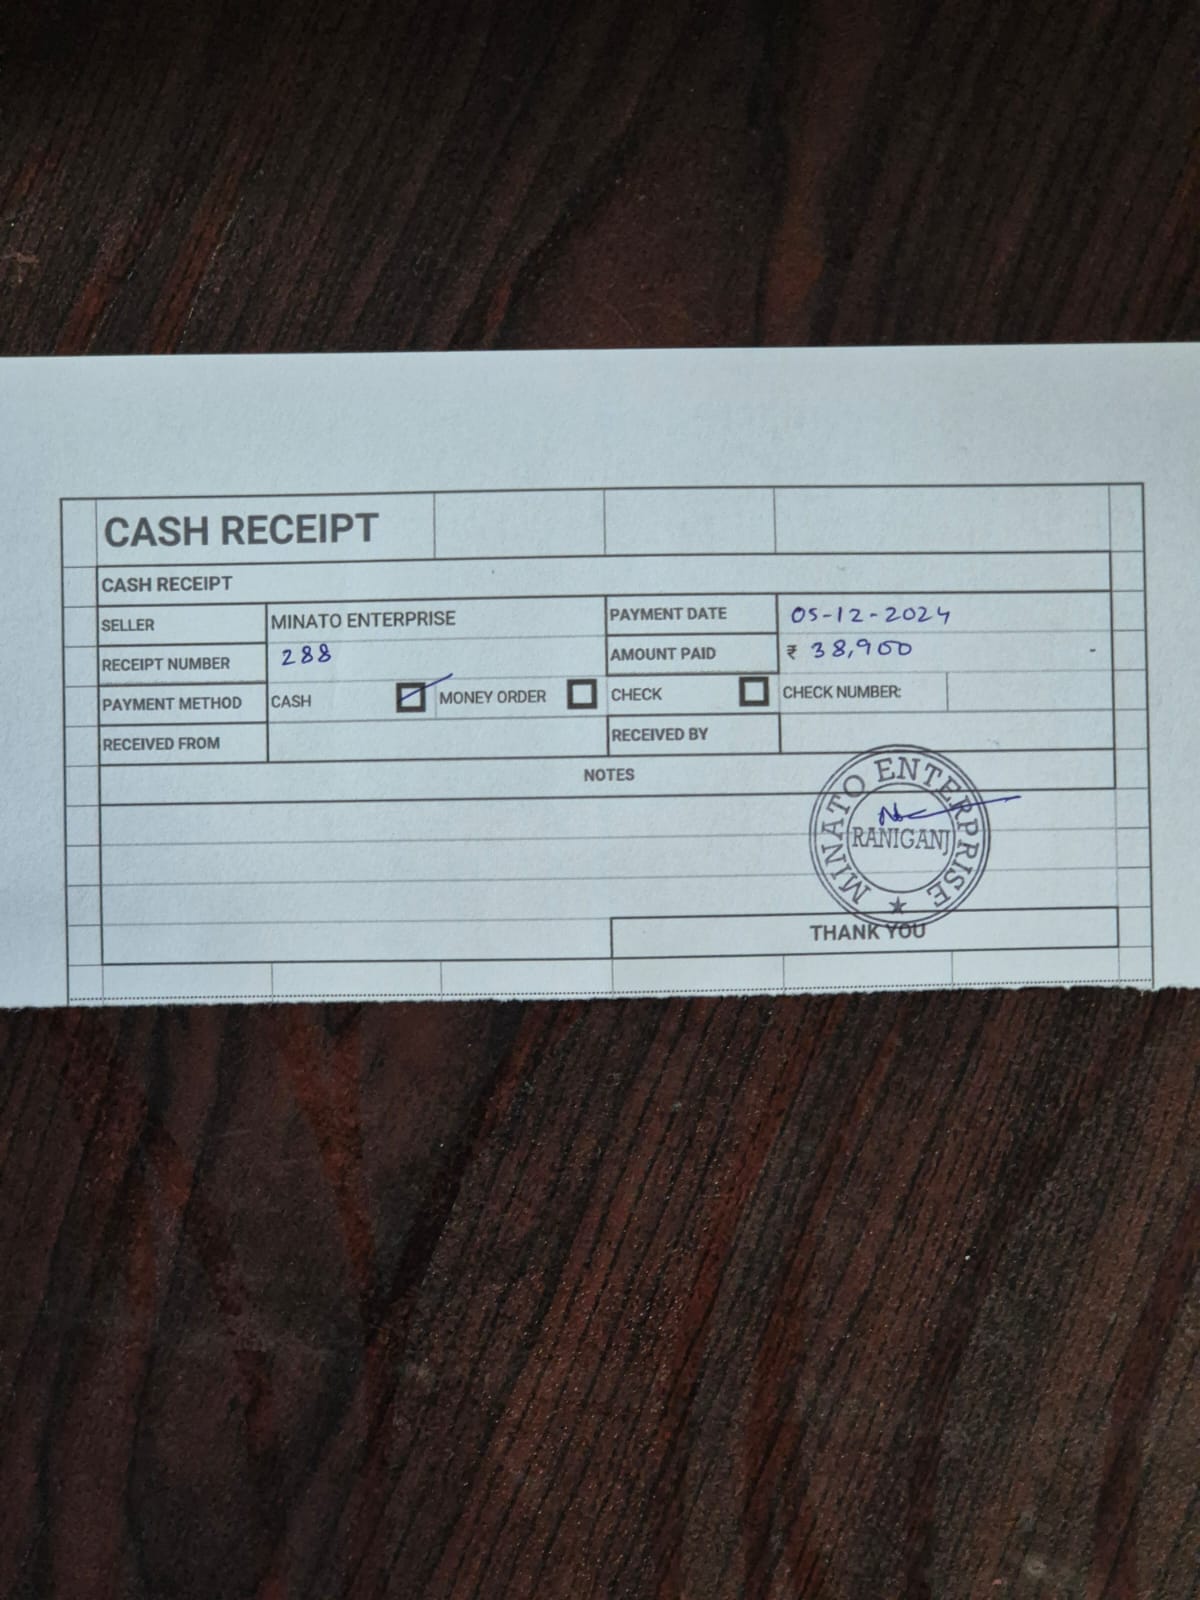 CASH RECEIPT
CASH RECEIPT
SELLER MINATO ENTERPRISE PAYMENT DATE 05-12-2024
RECEIPT NUMBER 288 AMOUNT PAID ₹ 38,900
PAYMENT METHOD CASH MONEY ORDER CHECK CHECK NUMBER:
RECEIVED FROM RECEIVED BY
NOTES
MINATO ENTERPRISE
RANIGANJ
THANK YOU